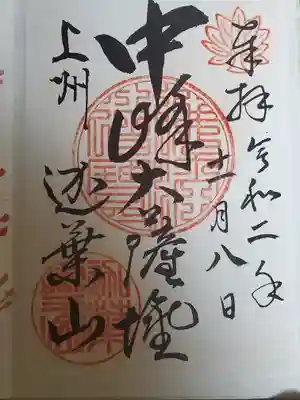 奉拝 令和二年
十一月八日
中峰大薩埵
上州 迦葉山